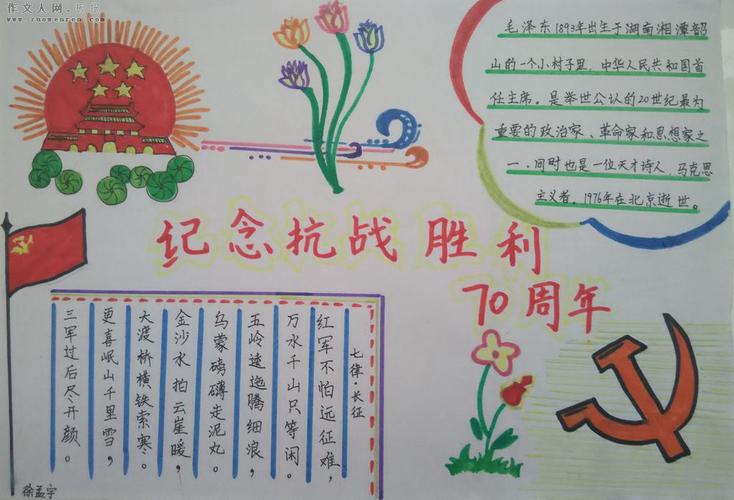 作文人网
www.zuowenren.com
毛泽东1893年出生于湖南湘潭韶
山的一个小村子里,中华人民共和国首
任主席。是举世公认的20世纪最为
重要的政治家、革命家和思想家之
一,同时也是一位天才诗人,马克思
主义者,1976年在北京逝世。
纪念抗战胜利
70周年
七律·长征
红军不怕远征难,
万水千山只等闲。
五岭逶迤腾细浪,
乌蒙磅礴走泥丸。
金沙水拍云崖暖,
大渡桥横铁索寒。
更喜岷山千里雪,
三军过后尽开颜。
徐孟宇